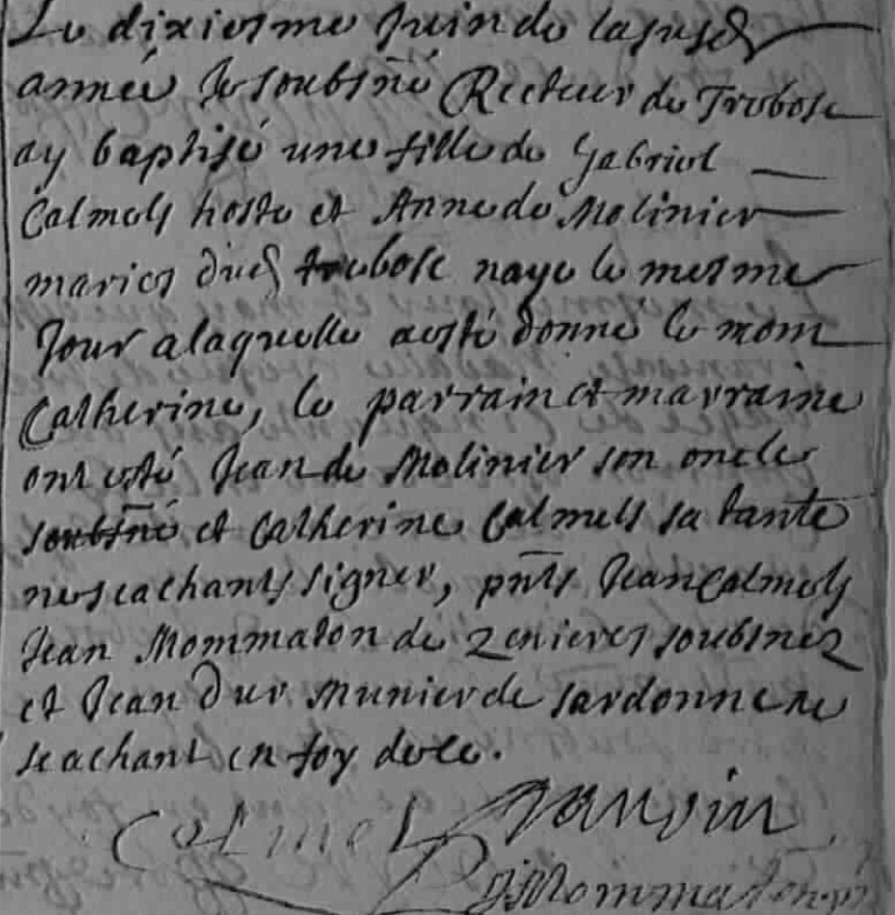 Le dixiesme Juin de lasusd
année Je soubsné Recteur de Trobosc
ay baptisé une fille de Gabriel
Calmels hoste et Anne de Molinier
maries dud trobosc naye le mesme
Jour a laquelle aesté donne le mom
Catherine, le parrain et marraine
ont esté Jean de Molinier son oncle
soubsné et Catherine Calmels sa tante
nescachants signer, pnts Jean Calmels
Jean Mommaton de Zenieres soubsnez
et Jean Dur Munier de sardonne ne
scachant en foy dece.
Calmels
JMommaton